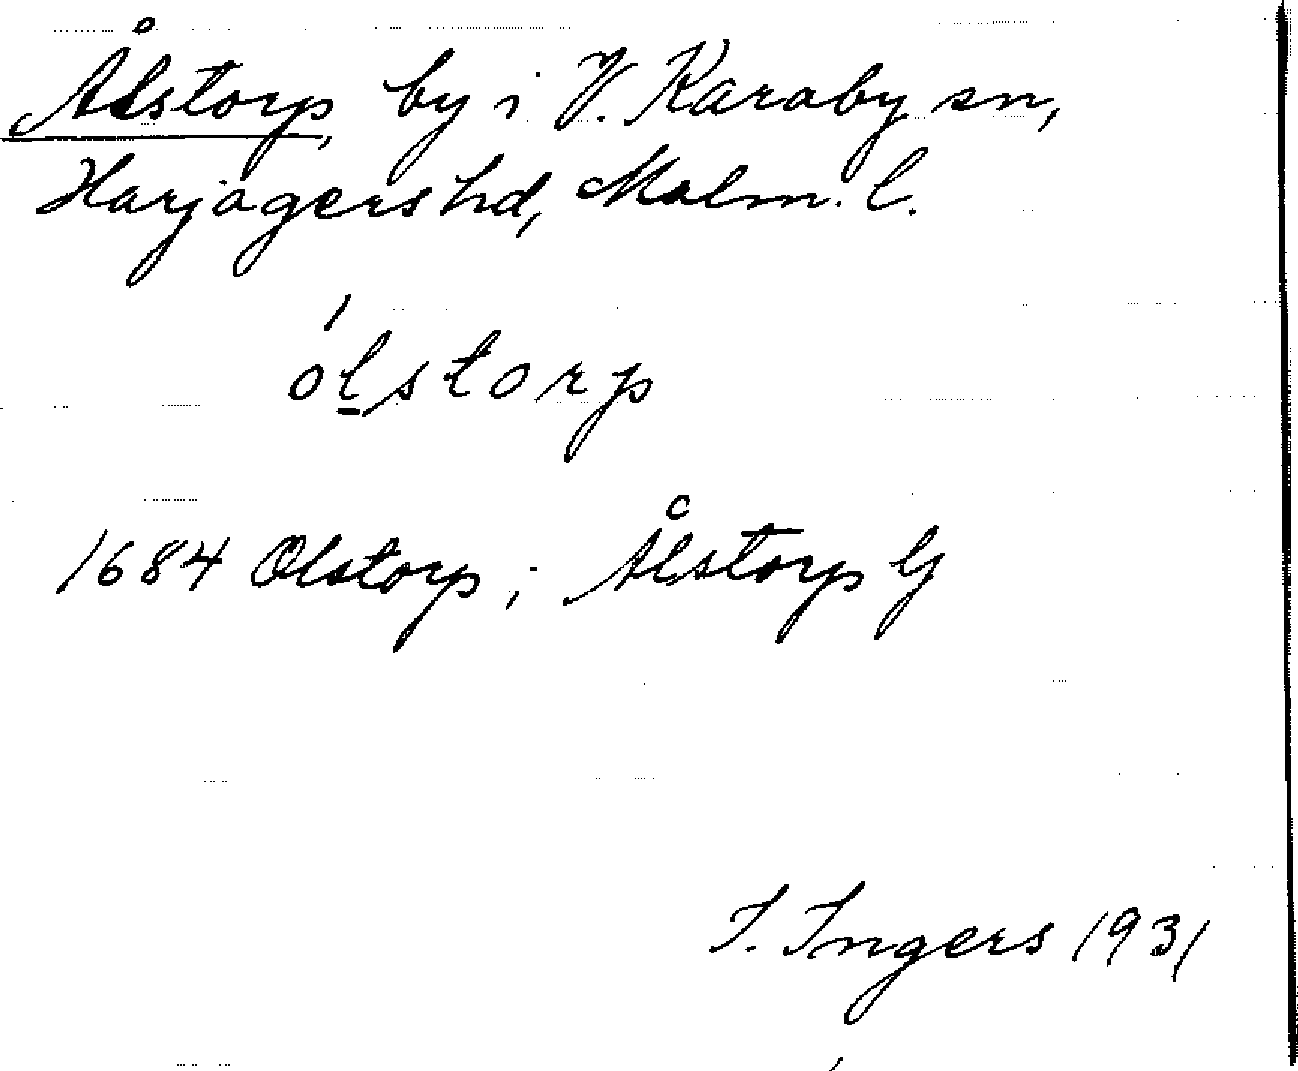 Ålstorp, by i V. Karaby sn,
Harjagers hd, Malm. l.
ólstorp
1684 Olstorp; Ålstorp G
I. Ingers 1931